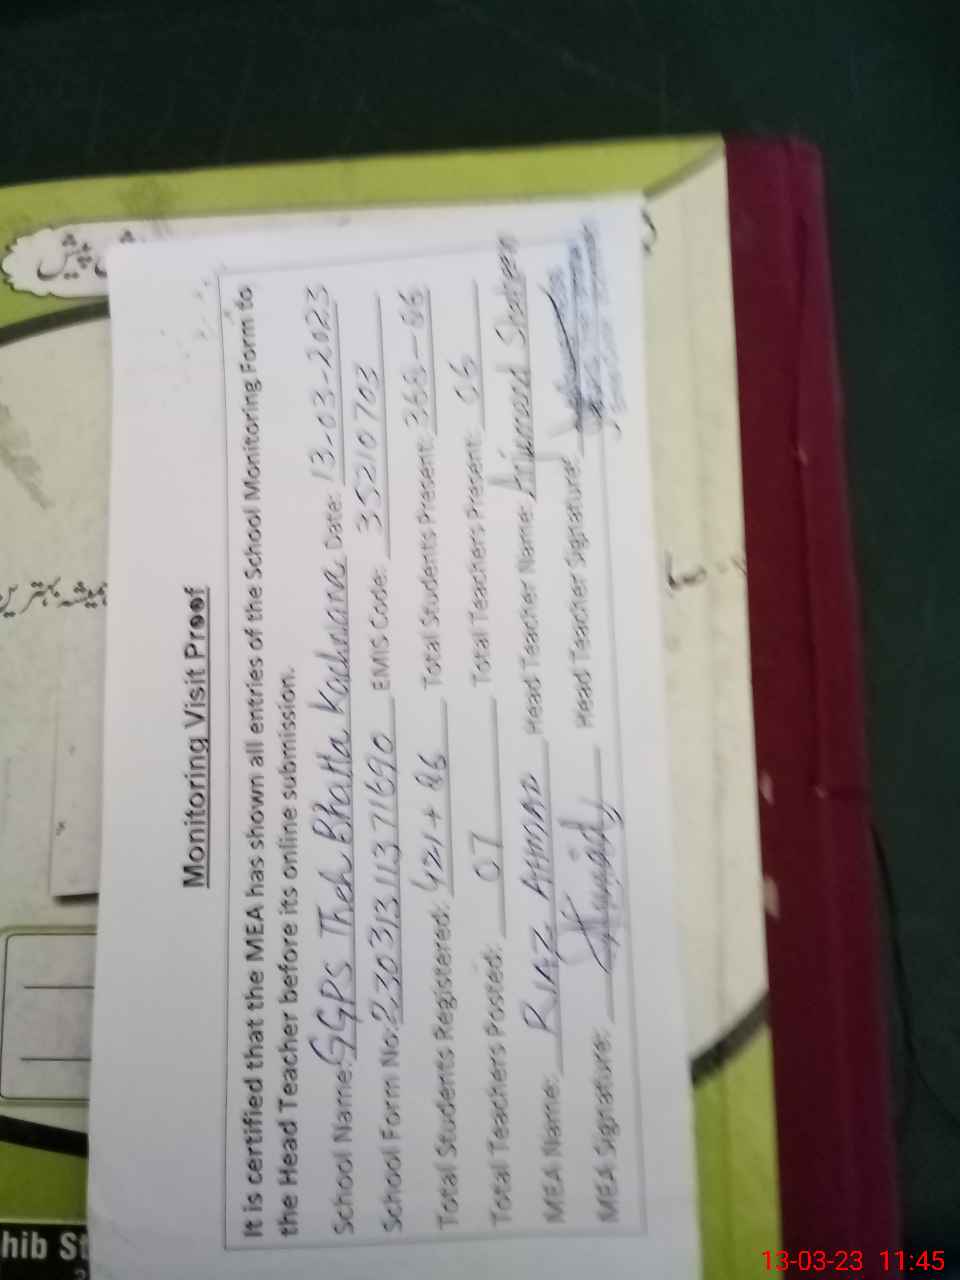 پیش
ہمیشہ بہترین
Monitoring Visit Proof
It is certified that the MEA has shown all entries of the School Monitoring Form to
the Head Teacher before its online submission.
School Name: GGPS Theh Bhatta Kachwana Date: 13-03-2023
School Form No: 230313113771690 EMIS Code: 35210703
Total Students Registered: 421+86 Total Students Present: 368-66
Total Teachers Posted: 07 Total Teachers Present: 06
MEA Name: RIAZ AHMAD Head Teacher Name: Arjumand Shaheen
MEA Signature: Head Teacher Signature:
hib St
13-03-23 11:45